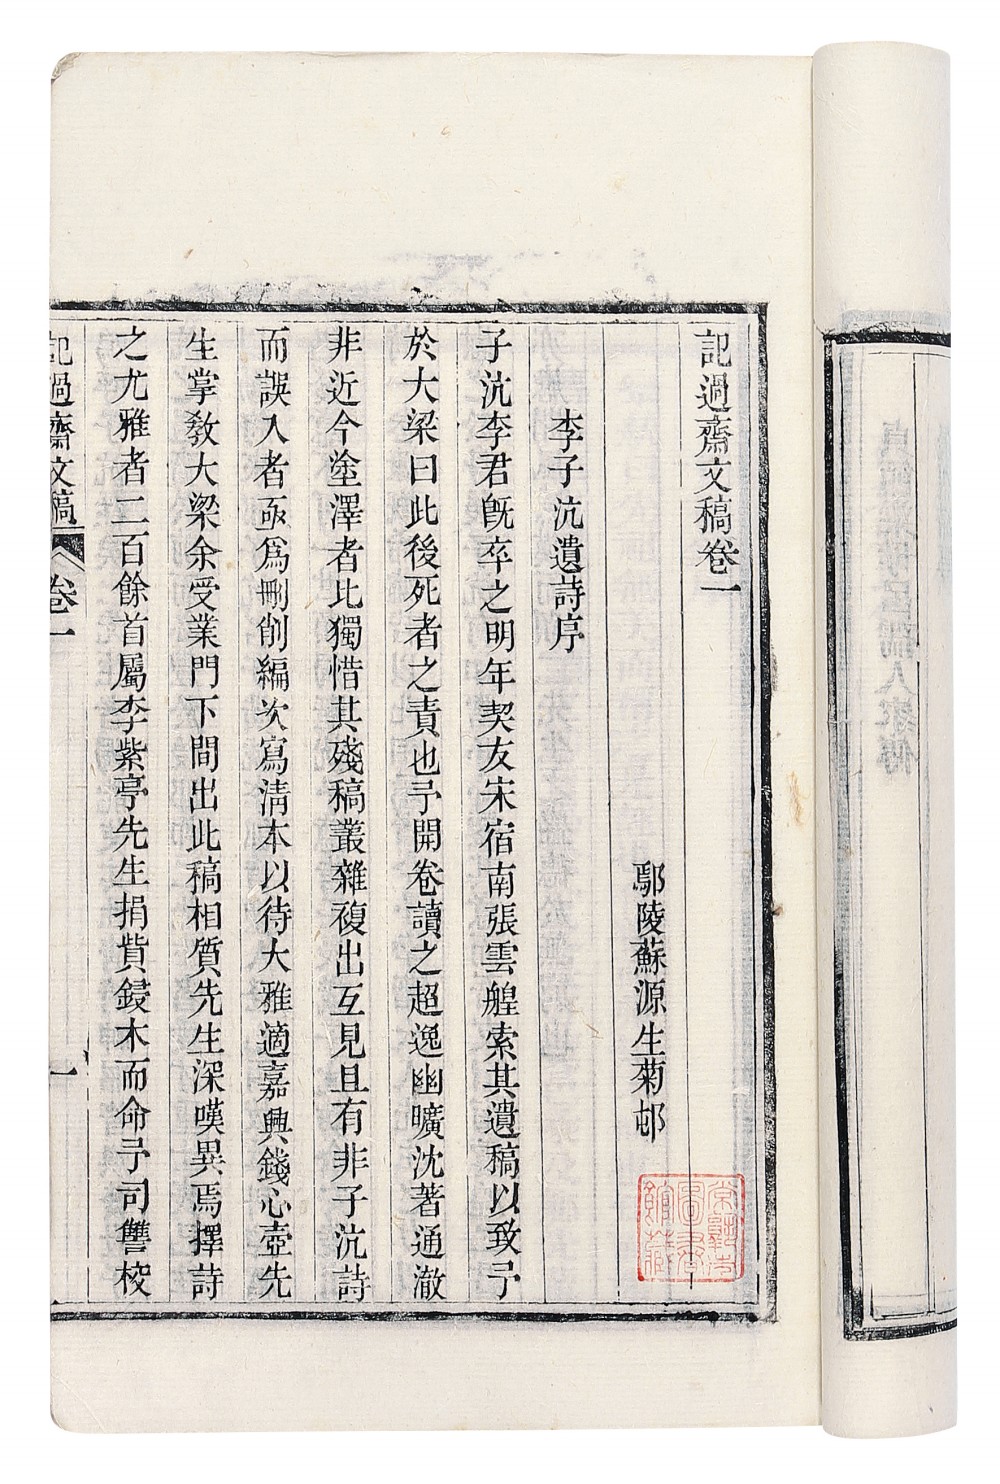 記過齋文稿卷一
鄢陵蘇源生菊邨
李子沆遺詩序
子沆李君旣卒之明年契友宋宿南張雲艎索其遺稿以致予
於大梁曰此後死者之責也予開卷讀之超逸幽曠沈著通澈
非近今塗澤者比獨惜其殘稿叢雜複出互見且有非子沆詩
而誤入者亟爲刪削編次寫淸本以待大雅適嘉興錢心壺先
生掌敎大梁余受業門下間出此稿相質先生深嘆異焉擇詩
之尤雅者二百餘首屬李紫亭先生捐貲鋟木而命予司讐校
記過齋文稿
卷一
一